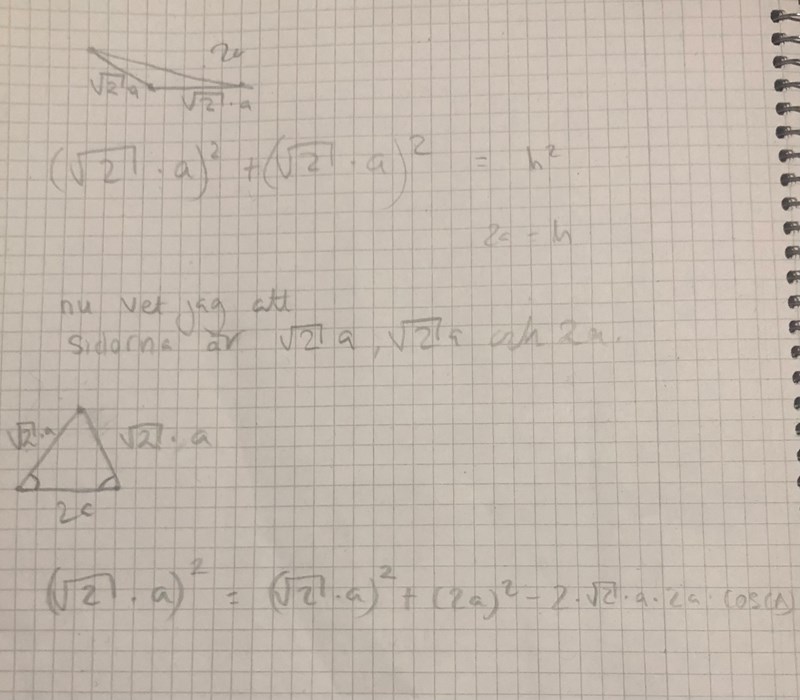 2a
√2 a
√2 · a
(√2 · a)² + (√2 · a)² = h²
2a = h
nu vet jag att
sidorna är √2 a, √2 a och 2a.
√2 · a √2 · a
2a
(√2 · a)² = (√2 · a)² + (2a)² - 2 · √2 · a · 2a · cos(A)